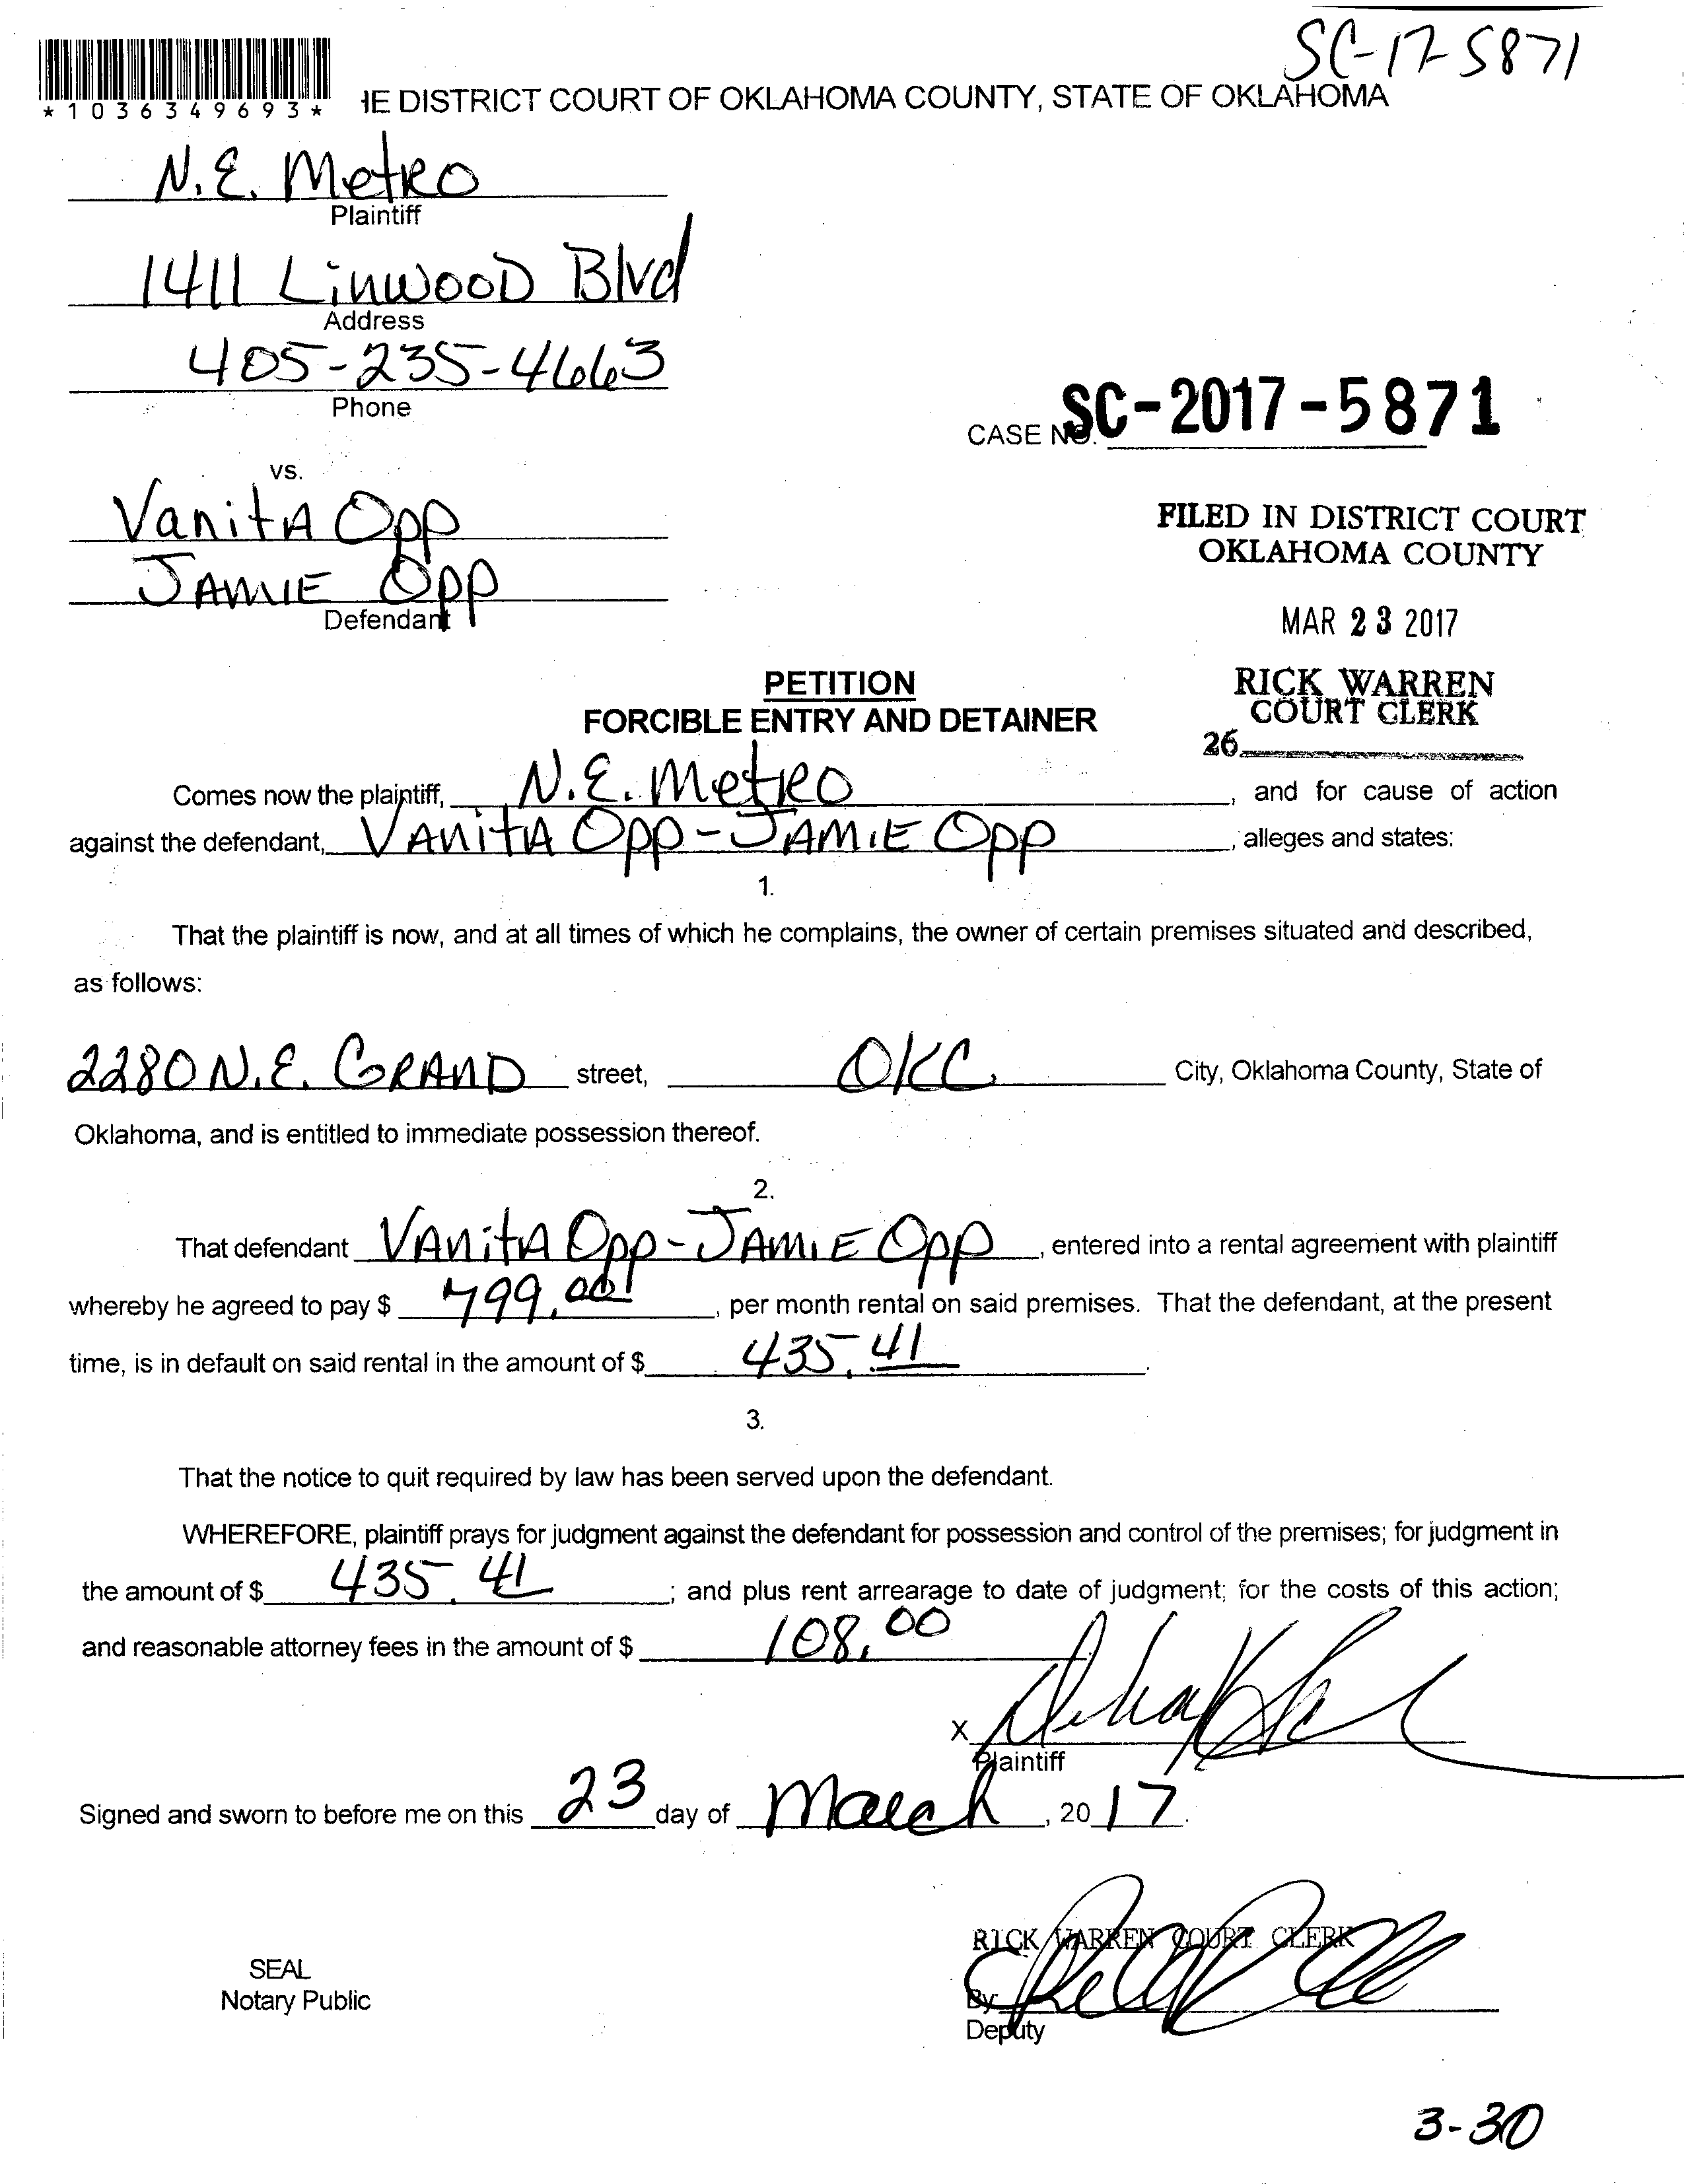 SC-17-5871
*1036349693*
IE DISTRICT COURT OF OKLAHOMA COUNTY, STATE OF OKLAHOMA
N.E. Metro
Plaintiff
1411 Linwood Blvd
Address
405-235-4663
Phone
CASE NO. SC-2017-5871
vs.
Vanita Opp
Jamie Opp
Defendant
FILED IN DISTRICT COURT
OKLAHOMA COUNTY
MAR 23 2017
RICK WARREN
COURT CLERK
26
PETITION
FORCIBLE ENTRY AND DETAINER
Comes now the plaintiff, N.E. Metro, and for cause of action
against the defendant, Vanita Opp-Jamie Opp, alleges and states:
1.
That the plaintiff is now, and at all times of which he complains, the owner of certain premises situated and described,
as follows:
2280 N.E. Grand street, OKC City, Oklahoma County, State of
Oklahoma, and is entitled to immediate possession thereof.
2.
That defendant Vanita Opp-Jamie Opp, entered into a rental agreement with plaintiff
whereby he agreed to pay $ 799.00, per month rental on said premises. That the defendant, at the present
time, is in default on said rental in the amount of $ 435.41.
3.
That the notice to quit required by law has been served upon the defendant.
WHEREFORE, plaintiff prays for judgment against the defendant for possession and control of the premises; for judgment in
the amount of $ 435.41; and plus rent arrearage to date of judgment; for the costs of this action;
and reasonable attorney fees in the amount of $ 108.00
X
Plaintiff
Signed and sworn to before me on this 23 day of March, 2017.
RICK WARREN COURT CLERK
SEAL
Notary Public
By
Deputy
3-30